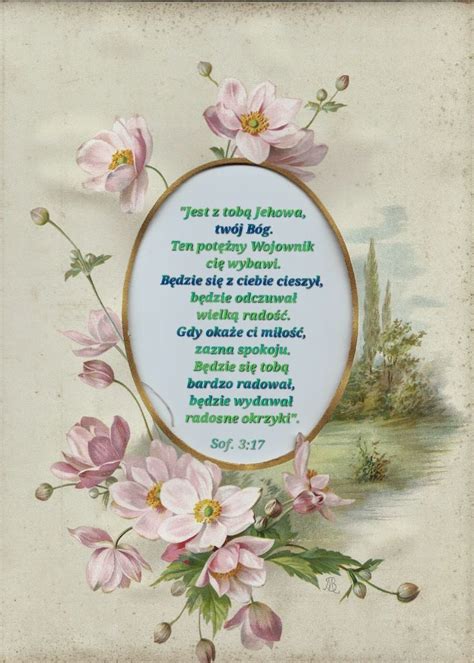 "Jest z tobą Jehowa,
twój Bóg.
Ten potężny Wojownik
cię wybawi.
Będzie się z ciebie cieszył,
będzie odczuwał
wielką radość.
Gdy okaże ci miłość,
zazna spokoju.
Będzie się tobą
bardzo radował,
będzie wydawał
radosne okrzyki".
Sof. 3:17